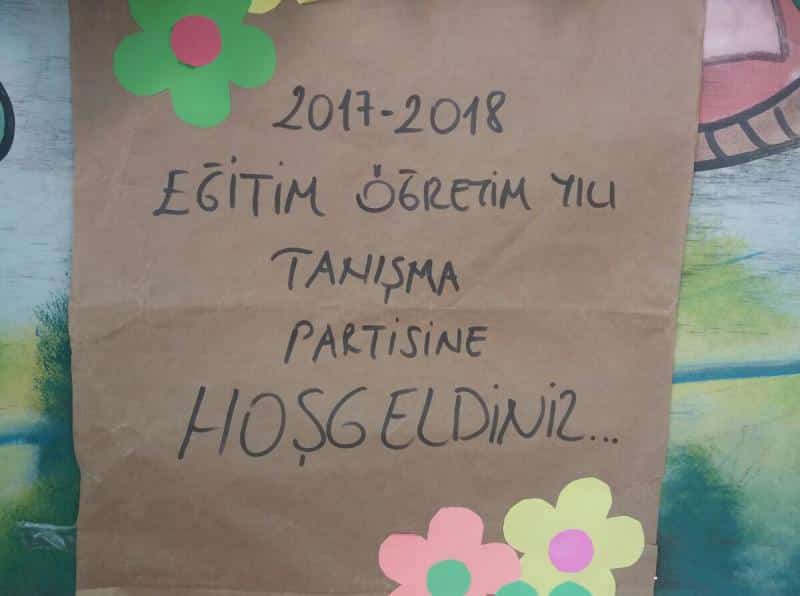 2017-2018
EĞİTİM ÖĞRETİM YILI
TANIŞMA
PARTİSİNE
HOŞGELDİNİZ...